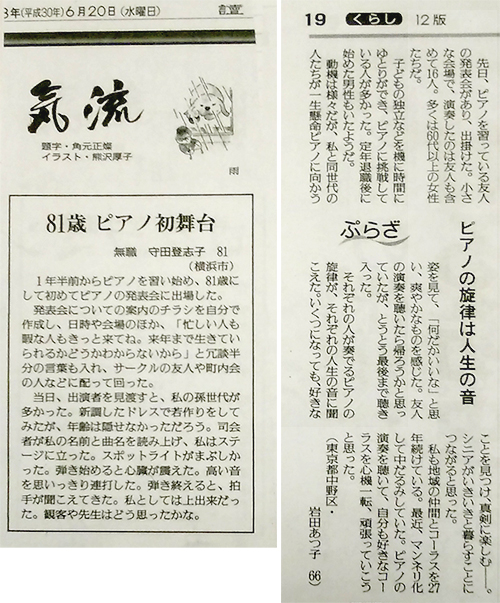 8年(平成30年)6月20日(水曜日)
気流
題字・角元正燦
イラスト・熊沢厚子
雨
81歳 ピアノ初舞台
無職 守田登志子 81
(横浜市)
1年半前からピアノを習い始め、81歳に
して初めてピアノの発表会に出場した。
発表会についての案内のチラシを自分で
作成し、日時や会場のほか、「忙しい人も
暇な人もきっと来てね。来年まで生きてい
られるかどうかわからないから」と冗談半
分の言葉も入れ、サークルの友人や町内会
の人などに配って回った。
当日、出演者を見渡すと、私の孫世代が
多かった。新調したドレスで若作りをして
みたが、年齢は隠せなかっただろう。司会
者が私の名前と曲名を読み上げ、私はステ
ージに立った。スポットライトがまぶしか
った。弾き始めると心臓が震えた。高い音
を思いっきり連打した。弾き終えると、拍
手が聞こえてきた。私としては上出来だっ
た。観客や先生はどう思ったかな。
19 くらし 12版
先日、ピアノを習っている友人
の発表会があり、出掛けた。小さ
な会場で、演奏したのは友人も含
めて16人。多くは60代以上の女性
たちだ。
子どもの独立などを機に時間に
ゆとりができ、ピアノに挑戦して
いる人が多かった。定年退職後に
始めた男性もいたようだ。
動機は様々だが、私と同世代の
人たちが一生懸命ピアノに向かう
ぷらざ
ピアノの旋律は人生の音
姿を見て、「何だかいいな」と思
い、爽やかなものを感じた。友人
の演奏を聴いたら帰ろうかと思っ
ていたが、とうとう最後まで聴き
入った。
それぞれの人が奏でるピアノの
旋律が、それぞれの人生の音に聞
こえた。いくつになっても、好きな
ことを見つけ、真剣に楽しむ――。
シニアがいきいきと暮らすことに
つながると思った。
私も地域の仲間とコーラスを27
年続けている。最近、マンネリ化
して中だるみしていた。ピアノの
演奏を聴いて、自分も好きなコー
ラスを心機一転、頑張っていこう
と思った。
(東京都中野区・
岩田あつ子 66)